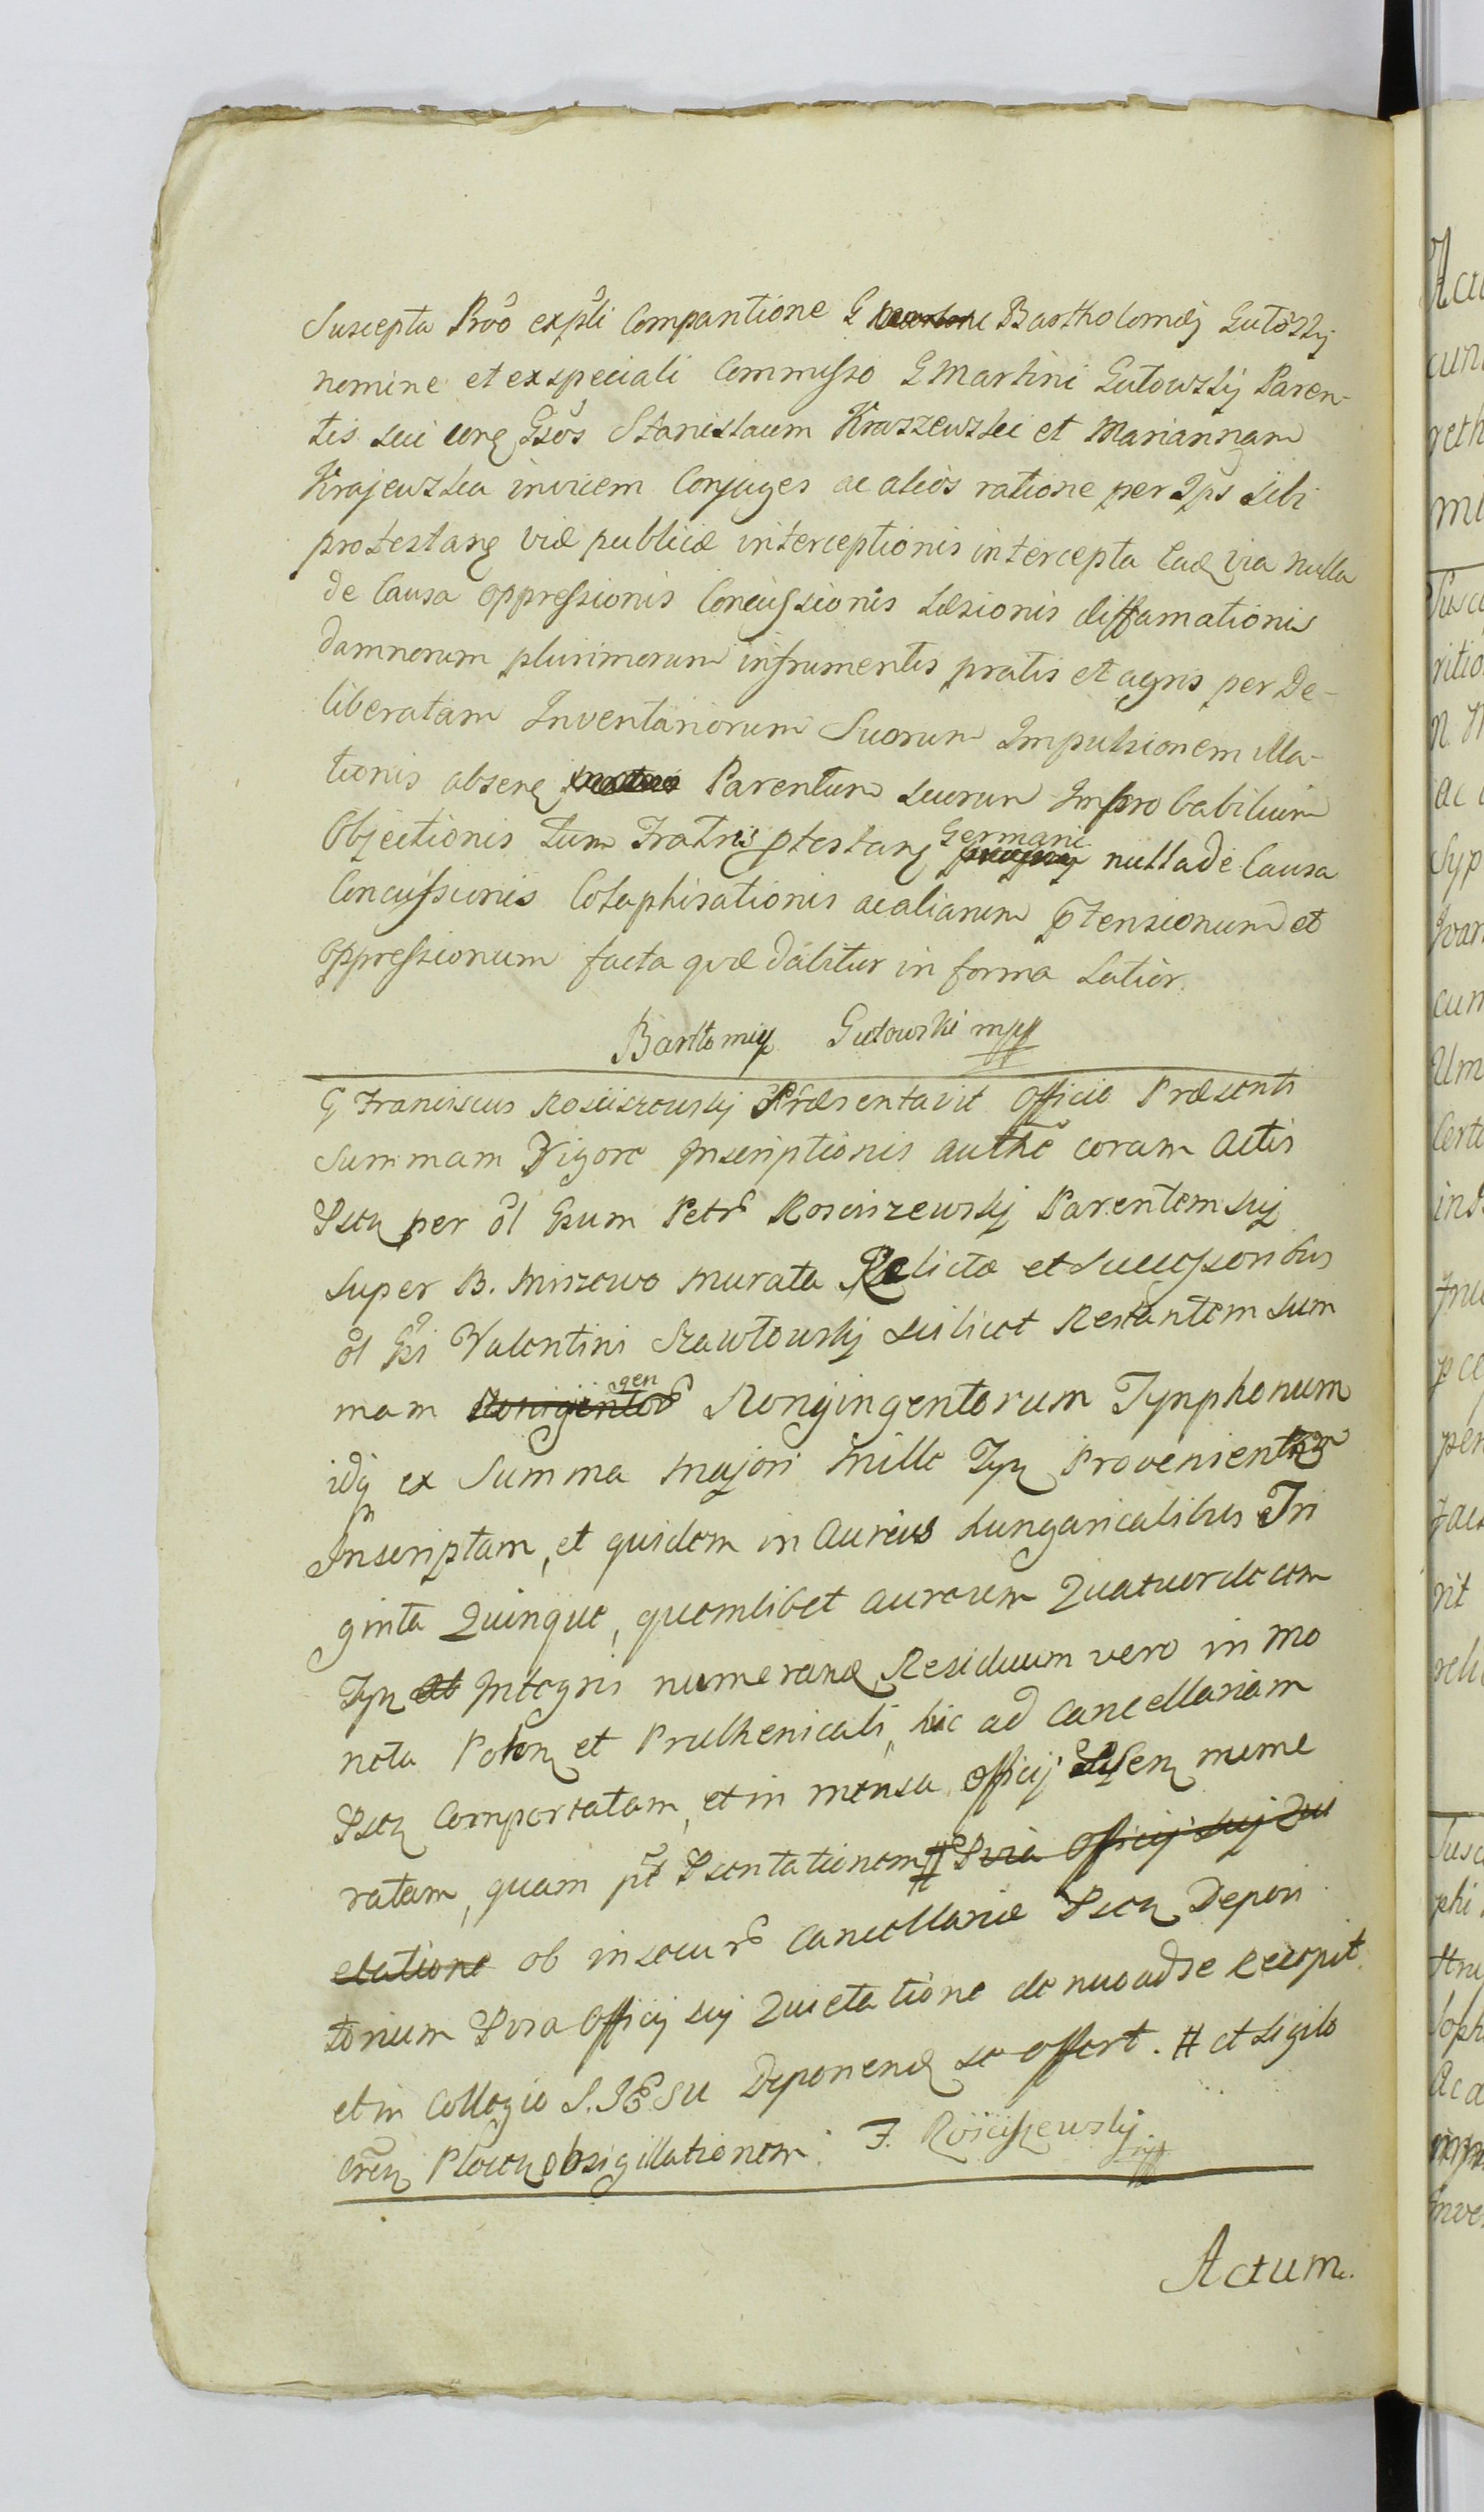 Suscepta Prõ expłi Compantione G Bartholomæj Gutowskij
nomine et ex speciali Commisso G Martini Gutowskij Paren-
tis sui erng Gsos Stanislaum Kraszewski et Mariannam
Krajewska invicem Conjuges ac alios ratione per Ips sibi
protestang viæ publicæ interceptionis intercepta Ead via nulla
de Causa oppressionis Concussionis Læsionis diffamationis
damnorum plurimorum in frumentis pratis et agris per De-
liberatam Inventariorum Suorum Impulsionem illa-
tionis obsenq Parentum suorum Improbabilium
Objectionis tum Fratris ptestang Germani nulla de Causa
Concussionis Colaphisationis ac aliarum Ptensionum et
oppressionum facta quæ dabitur in forma Latior.
Bartłomiej Gutowski mpp
G Franciscus Rosciszewskij Præsentavit Officio Præsenti
Summam Vigore Inscriptionis authe coram Actis
Pseń per ol Gsum Petr Rosciszewskij Parentem suj
super B. Miszewo Murata Relictæ et Successoribus
ol Gsi Valentini Szawłowskij scilicet Restantem Sum
mam Nongingentorum Tynphonum
idq ex Summa majori Mille Tyn Provenientem
Inscriptam, et quidem in Aureis hungaricalibus Tri
ginta Quinque, quemlibet aureum Quatuordecem
Tyn Integris numerand Residuum vero in Mo
neta Polon et Pruthenicali, hic ad Cancellariam
Psen Comportatam, et in mensa Officij Psen nume
ratam, quam pt Psentationem # Pvia Officij suj Qui
etatione ob insecur Cancellariæ Psen Depon
torium Pvia Officij suj Quietatione de nuo ad se Recepit
et in Collegio S. JESU Deponend se offert. # et sigilo
Cren Plocen obsigillationem. F. Rosciszewskij mpp
Actum.